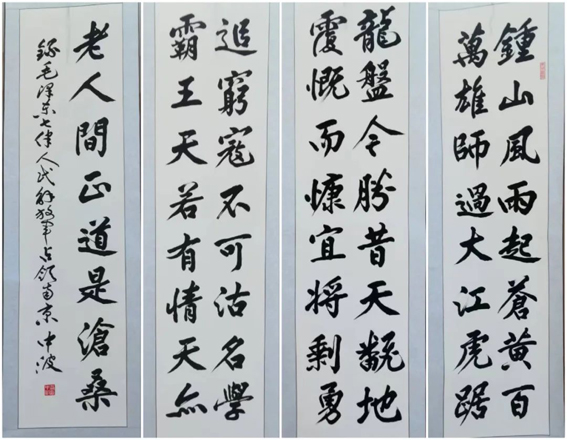 鍾山風雨起蒼黄百
萬雄師過大江虎踞
龍盤今勝昔天翻地
覆慨而慷宜將剩勇
追窮寇不可沽名學
霸王天若有情天亦
老人間正道是滄桑
錄毛泽东七律人民解放军占领南京 中波